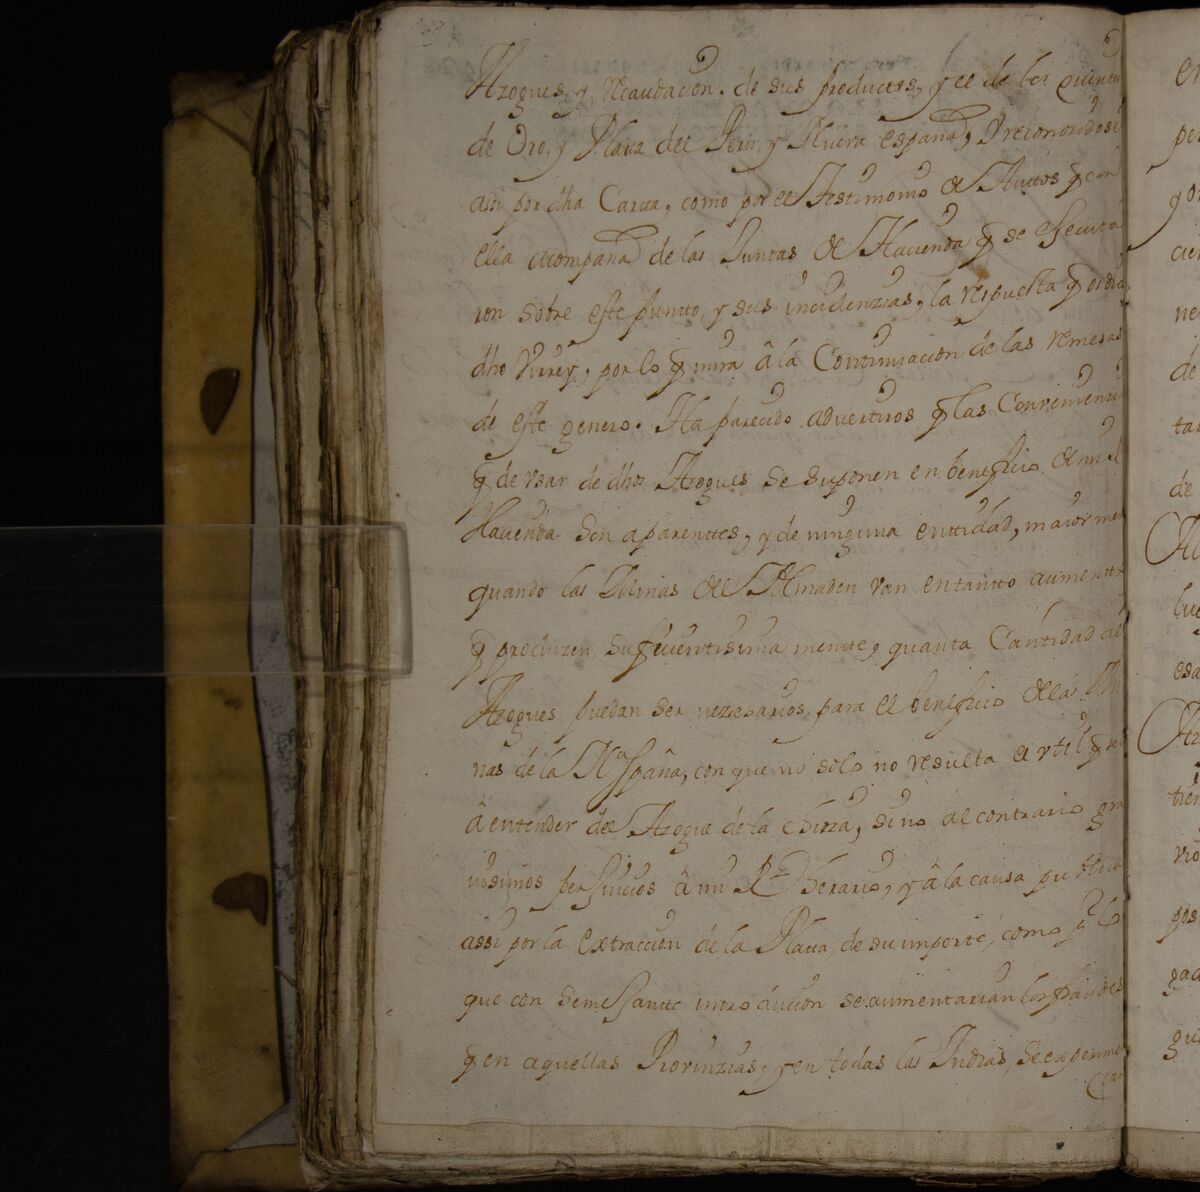 Azogues, y recaudacion. de sus productos, y el de los quintos
de Oro, y Plata del Peru, y Nueva españa, y reconozidose
assi por dha Carta, como por el Testimonio de Auttos q con
ella acompaña de las Juntas de Hacienda q se Executa
ron sobre este puntto, y sus incidenzias, la respuesta q os dio
dho Virrey, por lo q mira â la Continuacion de las remesas
de este genero. Ha parecido advertiros q las Convenienci
q de vsar de dhos Azogues se suponen en beneficio de mi Rl
Hacienda son aparenttes, y de ninguna enttidad, maiormen
quando las Minas del Almaden van en tantto aumentto
q producen suficienttisima mentte, quanta Canttidad de
Azogues puedan ser nezesarios para el beneficio de las Mi
nas de la Na España, con que no solo no resulta el vtil q se
â entender del Azogue de la China, sino al contrario gra
uisimos perJuicios â mi Rl herario, y â la causa publica
assi por la extraccion de la Platta, de su importe, como pr lo
que con semeJantte introducion se aumentarian los fraudes
q en aquellas Provinzias, y en todas las Indias, se experimen
tan